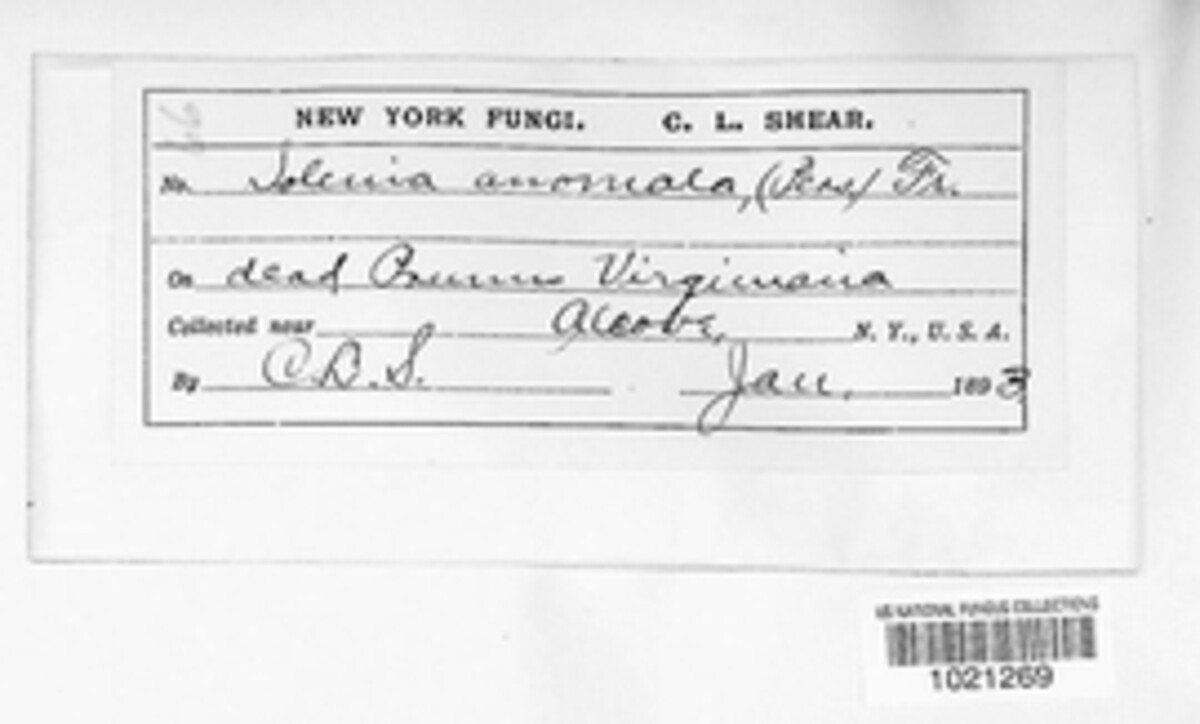 NEW YORK FUNGI. C. L. SHEAR.
No. Solenia anomala, (Pers) Fr.
On dead Prunus Virginiana
Collected near Alcove, N. Y., U. S. A.
By C. L. S. Jan. 1893
US NATIONAL FUNGUS COLLECTIONS
1021269